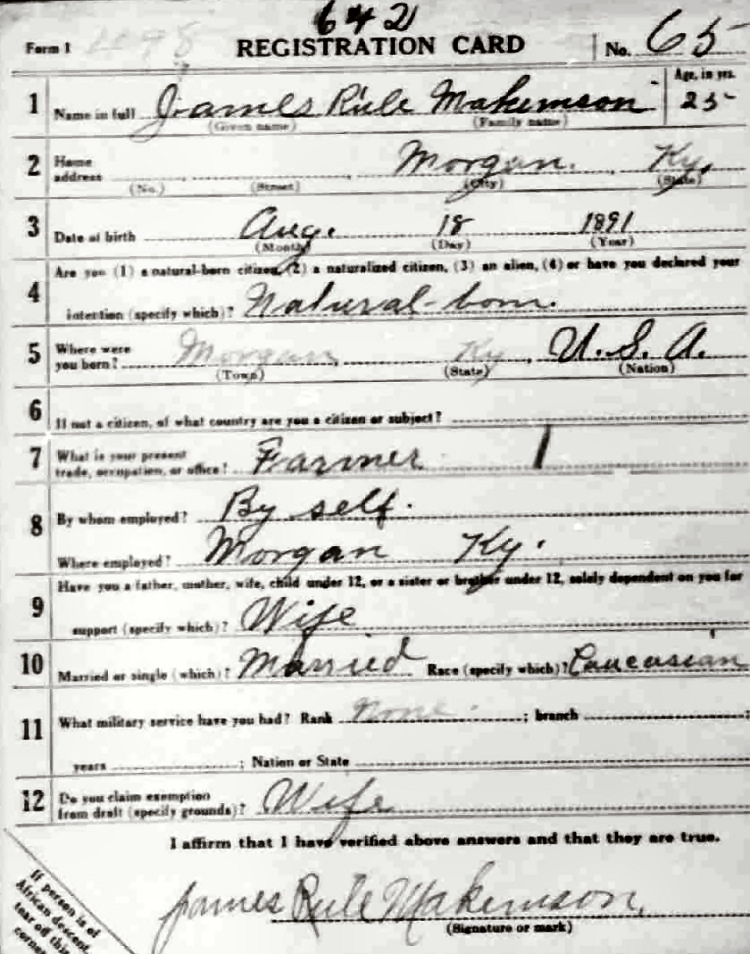 642
Form 1 REGISTRATION CARD No. 65
1 Name in full James Rule Makemson Age, in yrs. 25
(Given name) (Family name)
2 Home address Morgan. Ky.
(No.) (Street) (City) (State)
3 Date of birth Aug. 18 1891
(Month) (Day) (Year)
4 Are you (1) a natural-born citizen, (2) a naturalized citizen, (3) an alien, (4) or have you declared your
intention (specify which)? Natural-born.
5 Where were you born? Morgan, Ky, U.S.A.
(Town) (State) (Nation)
6 If not a citizen, of what country are you a citizen or subject?
7 What is your present trade, occupation, or office? Farmer 1
8 By whom employed? By self.
Where employed? Morgan Ky.
9 Have you a father, mother, wife, child under 12, or a sister or brother under 12, solely dependent on you for
support (specify which)? Wife
10 Married or single (which)? Married Race (specify which)? Caucasian
11 What military service have you had? Rank None. ; branch ;
years ; Nation or State
12 Do you claim exemption from draft (specify grounds)? Wife
I affirm that I have verified above answers and that they are true.
James Rule Makemson,
(Signature or mark)
If person is of
African descent,
tear off this
corner